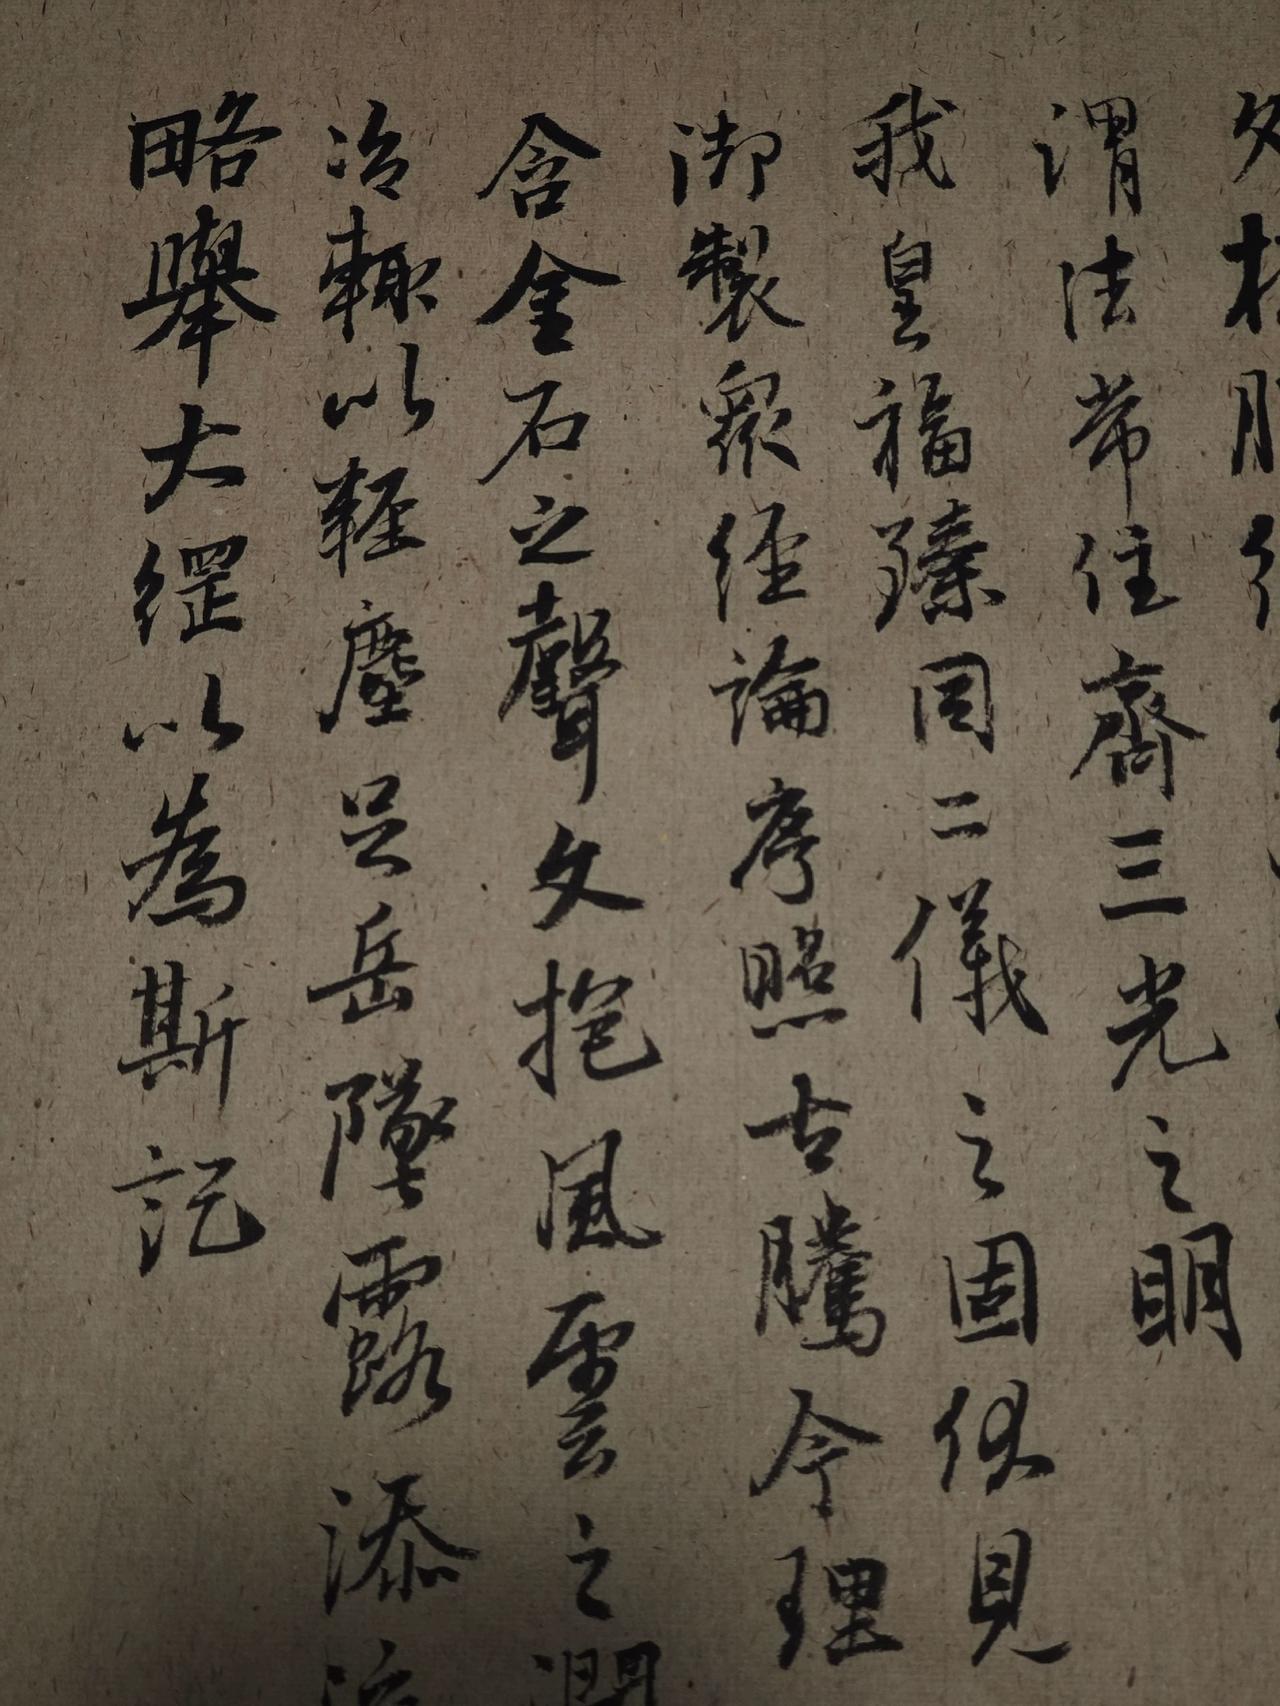 謂法常住齊三光之明
我皇福臻同二儀之固伏見
御製眾經論序照古騰今理
含金石之聲文抱風雲之潤
治輒以輕塵足岳墜露添
略舉大綱以為斯記